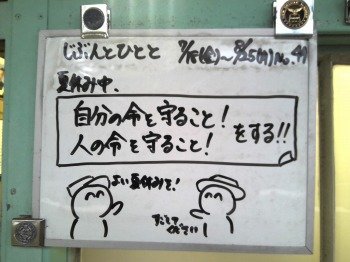 じぶんとひとと 7/15(金)～8/25(月) No.41
夏休み中、
自分の命を守ること！
人の命を守ること！
をする!!
よい夏休みを！